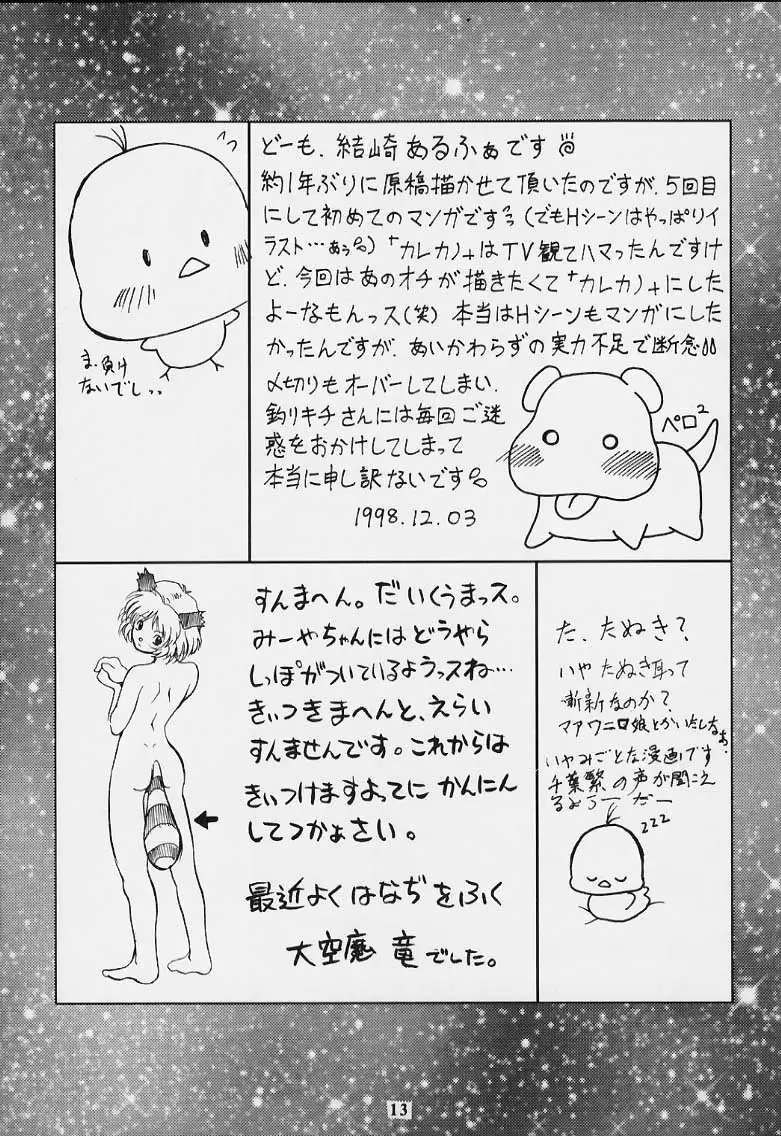 どーも、結崎あるふぁです
約1年ぶりに原稿描かせて頂いたのですが、5回目
にして初めてのマンガです(でもHシーンはやっぱりイ
ラスト…あぅ)「カレカノ」はTV観てハマったんですけ
ど、今回はあのオチが描きたくて「カレカノ」にした
よーなもんっス(笑) 本当はHシーンもマンガにした
かったんですが、あいかわらずの実力不足で断念
〆切りもオーバーしてしまい、
釣りキチさんには毎回ご迷
惑をおかけしてしまって
本当に申し訳ないです
1998.12.03
ペロ2
ま、負け
ないでし、、
すんまへん。だいくうまっス。
みーやちゃんにはどうやら
しっぽがついているようっスね…
きぃつきまへんと、えらい
すんませんです。これからは
きぃつけますよってに かんにん
してつかぁさい。
最近よくはなぢをふく
大空魔 竜でした。
た、たぬき?
いや たぬき耳って
斬新なのか?
マアワニ口娘とかいたしなぁ、
いやみごとな漫画です
千葉繁の声が聞こえ
るようーだー
zzz
13